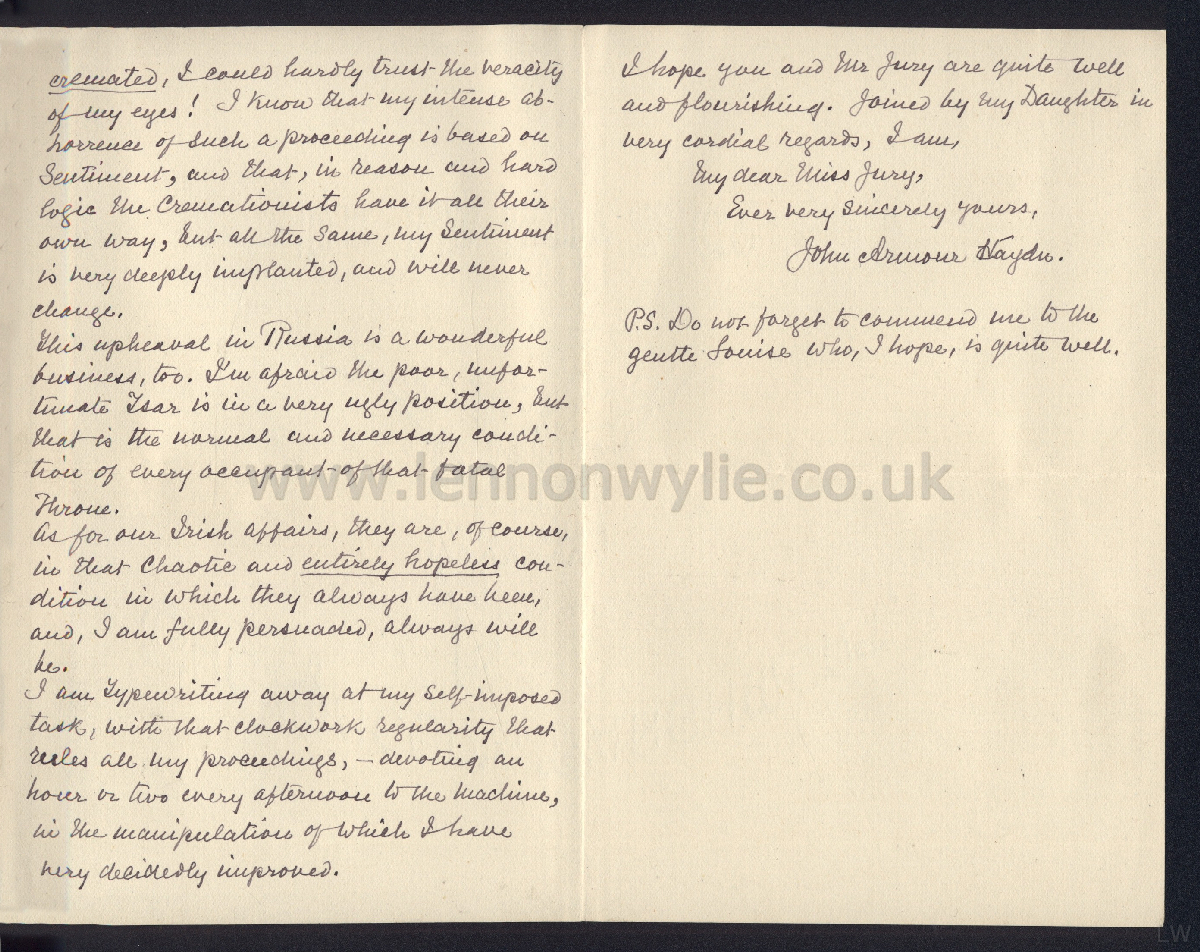 cremated, I could hardly trust the veracity
of my eyes! I know that my intense ab-
horrence of such a proceeding is based on
Sentiment, and that, in reason and hard
logic the Cremationists have it all their
own way, but all the same, my Sentiment
is very deeply implanted, and will never
change.
This upheaval in Russia is a wonderful
business, too. I'm afraid the poor, unfor-
tunate Tsar is in a very ugly position, but
that is the normal and necessary condi-
tion of every occupant of that fatal
Throne.
As for our Irish affairs, they are, of course,
in that Chaotic and entirely hopeless con-
dition in which they always have been,
and, I am fully persuaded, always will
be.
I am Typewriting away at my self-imposed
task, with that clockwork regularity that
rules all my proceedings, — devoting an
hour or two every afternoon to the Machine,
in the manipulation of which I have
very decidedly improved.
I hope you and Mr Jury are quite well
and flourishing. Joined by my Daughter in
very cordial regards, I am,
My dear Miss Jury,
Ever very Sincerely yours,
John Armour Haydn.
P.S. Do not forget to commend me to the
gentle Louise who, I hope, is quite well.
www.lennonwylie.co.uk
LW